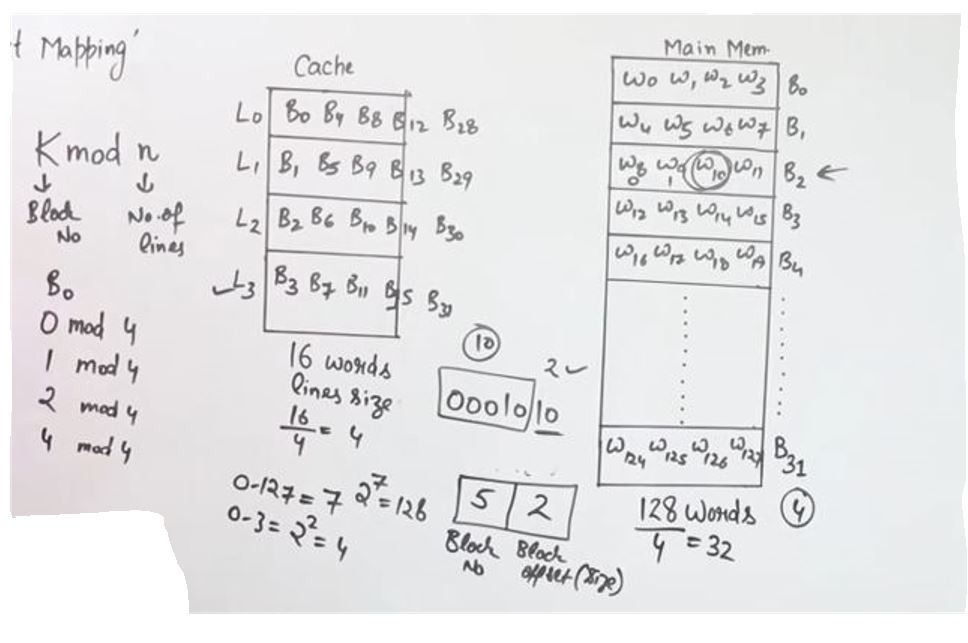 t Mapping'
K mod n
Block No
No. of lines
B0
0 mod 4
1 mod 4
2 mod 4
4 mod 4
Cache
L0 B0 B4 B8 B12 B28
L1 B1 B5 B9 B13 B29
L2 B2 B6 B10 B14 B30
L3 B3 B7 B11 B15 B31
16 words
lines size
16/4 = 4
0-127 = 7 2^7 = 128
0-3 = 2^2 = 4
10
2
00010 10
5 2
Block No
Block offset (Size)
Main Mem.
W0 W1 W2 W3 B0
W4 W5 W6 W7 B1
W8 W9 W10 W11 B2
0 1
W12 W13 W14 W15 B3
W16 W17 W18 W19 B4
W124 W125 W126 W127 B31
128 words 4
128 words/4 = 32